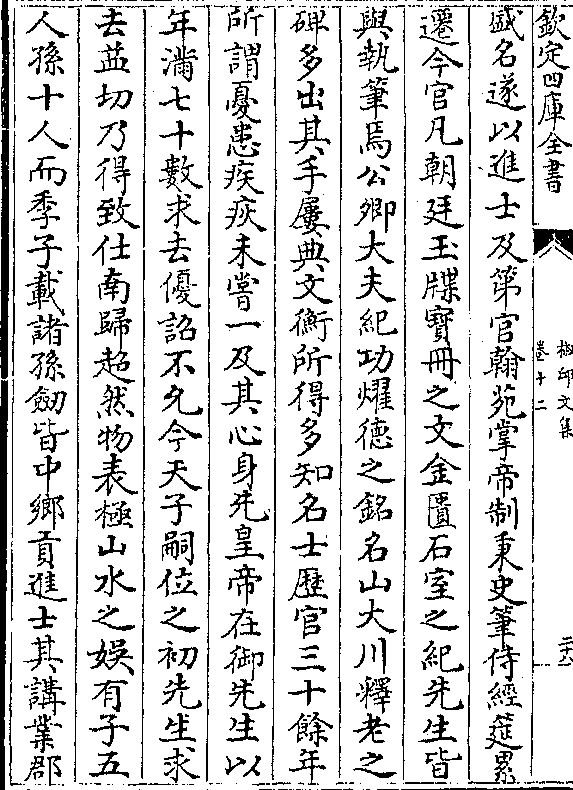 欽定四庫全書
卷十二
盛名遂以進士及第官翰苑掌帝制秉史筆侍經筵累
遷今官凡朝廷玉牒寶冊之文金匱石室之紀先生皆
與執筆焉公卿大夫紀功燿德之銘名山大川釋老之
碑多出其手屢典文衡所得多知名士歴官三十餘年
所謂憂患疾疢未嘗一及其心身先皇帝在御先生以
年滿七十數求去優詔不允今天子嗣位之初先生求
去益切乃得致仕南歸超然物表極山水之娱有子五
人孫十人而季子載諸孫劒皆中鄉貢進士其講業郡